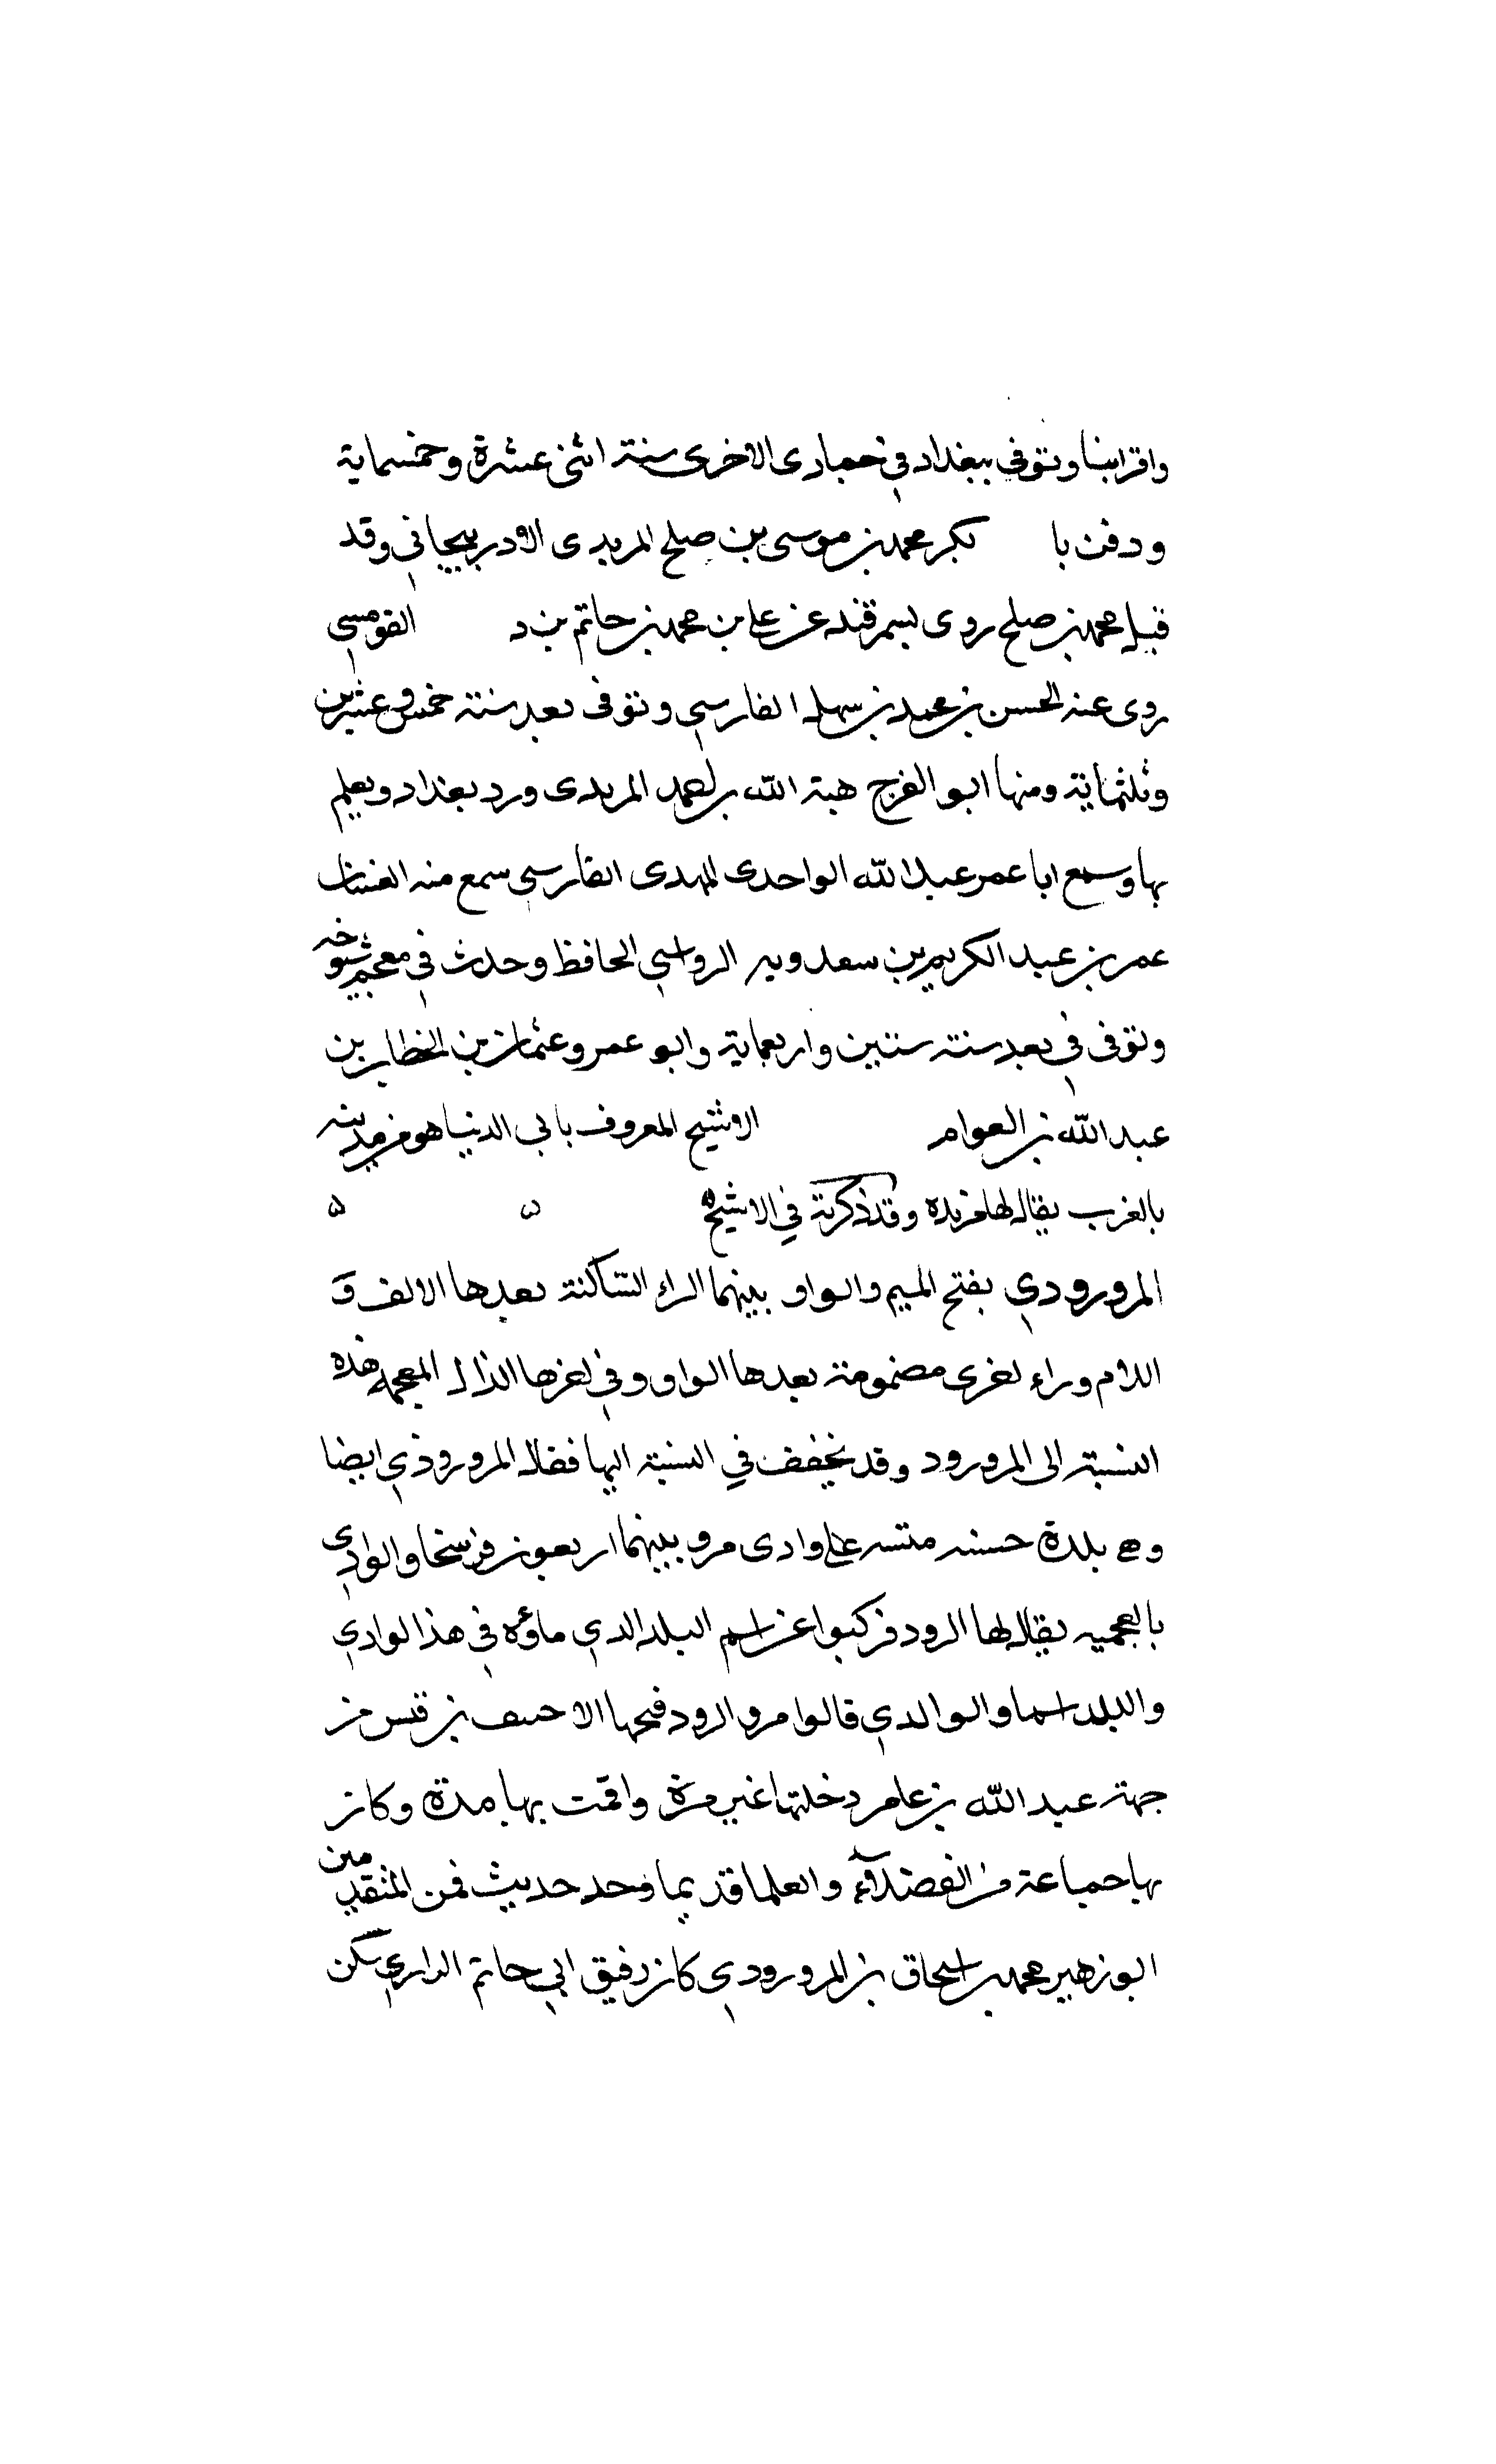 واقراننا وتوفي ببغداد في جمادى الاخرى سنة اثني عشرة وخمسماية
ودفن با بكر محمد بن موسى بن صلح المريدى الادربيجاني وقد
قيل محمد بن صلح روى بسمرقند عن على بن محمد بن حاتم بن د القومسي
روى عنه الحسن بن محمد بن سهل الفارسي وتوفى بعد سنة خمس وعشرين
وثلثماية ومنها ابو الفرج هبة الله بن احمد المريدى ورد بغداد وتعلم
بها وسمع ابا عمر عبد الله الواحدى المهدى الفارسي سمع منه الفتيان
عمر بن عبد الكريم بن سعدويه الرواسي الحافظ وحدث في معجم شيوخه
وتوفى في بعد سنة ستين واربعماية وابو عمرو عثمان بن الخطاب بن
عبد الله بن العوام الاشج المعروف بابي الدنيا هو من مدينه
بالغرب يقال لها مزيده وقد ذكرته في الاشج ه ه
المرورودي بفتح الميم والواو بينهما الراء الساكنة بعدها الالف و
اللام وراء اخرى مضمومة بعدها الواو وفي اخرها الذال المعجمه هذه
النسبة الى المرورود وقد يخفف في النسبة اليها فقال المروروذي ايضا
وهي بلدة حسنه مبنيه على وادى مرو بينهما اربعون فرسخا والوادى
بالعجميه يقال لها الرود فركبوا عن اسم البلد الدي ماؤه في هذا الوادي
والبلد اسما والوالدي قالوا مرو الرود فتحها الاحنف بن قيس من
جهة عبد الله بن عامر دخلتها غير مرة واقمت بها مدة وكان
بها جماعة من الفضلاء والعلما قديما وحد حديث فمن المتقدمين
ابو زهير محمد بن اسحاق بن المرورودي كان رفيق ابي حاتم الداري سكن